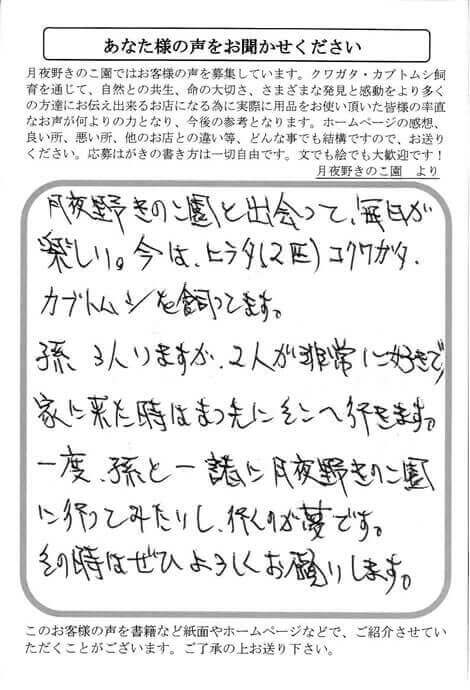 あなた様の声をお聞かせください
月夜野きのこ園ではお客様の声を募集しています。クワガタ・カブトムシ飼
育を通じて、自然との共生、命の大切さ、さまざまな発見と感動をより多く
の方達にお伝え出来るお店になる為に実際に用品をお使い頂いた皆様の率直
なお声が何よりの力となり、今後の参考となります。ホームページの感想、
良い所、悪い所、他のお店との違い等、どんな事でも結構ですので、お送り
ください。応募はがきの書き方は一切自由です。文でも絵でも大歓迎です！
月夜野きのこ園　より
月夜野きのこ園と出会って、毎日が
楽しい。今は、ヒラタ(2匹)コクワガタ、
カブトムシを飼ってます。
孫、3人いますが、2人が非常に好きで、
家に来た時はまっ先にそこへ行きます。
一度、孫と一諸に月夜野きのこ園
に行ってみたいし、行くのが夢です。
その時はぜひよろしくお願いします。
このお客様の声を書籍など紙面やホームページなどで、ご紹介させてい
ただくことがございます。ご了承の上お送り下さい。